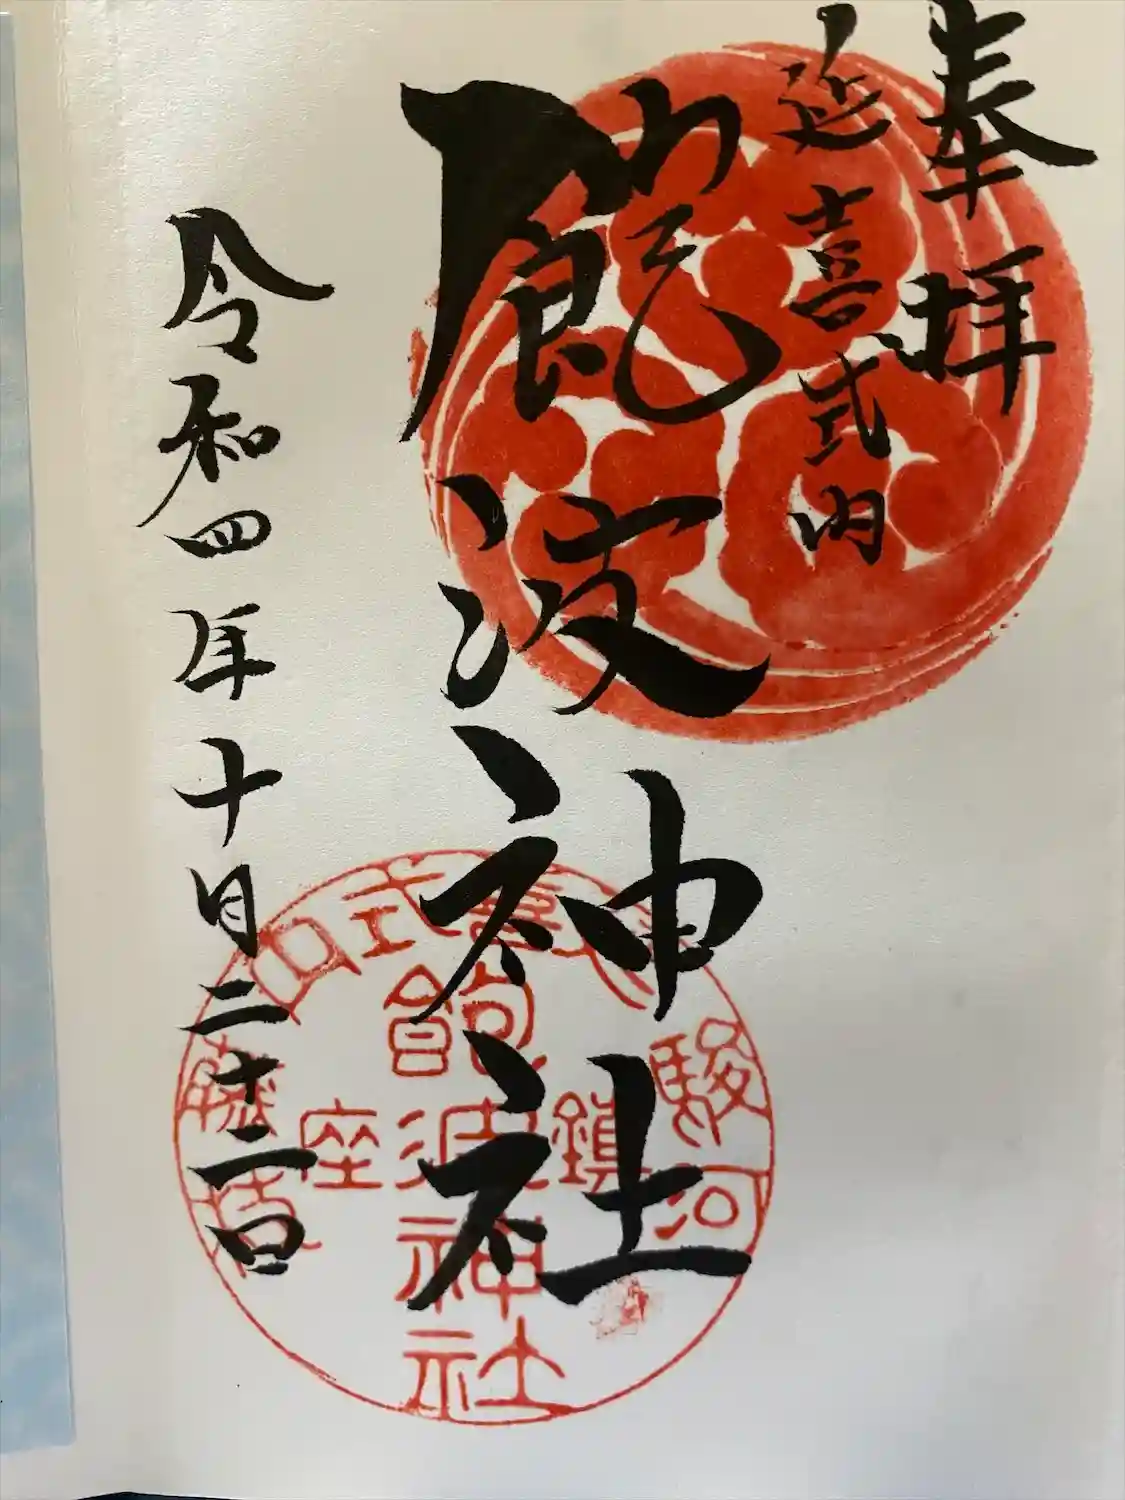 奉拝
延喜式内
飽波神社
令和四年十月二十二日
式内
駿河
鎮座
飽波神社